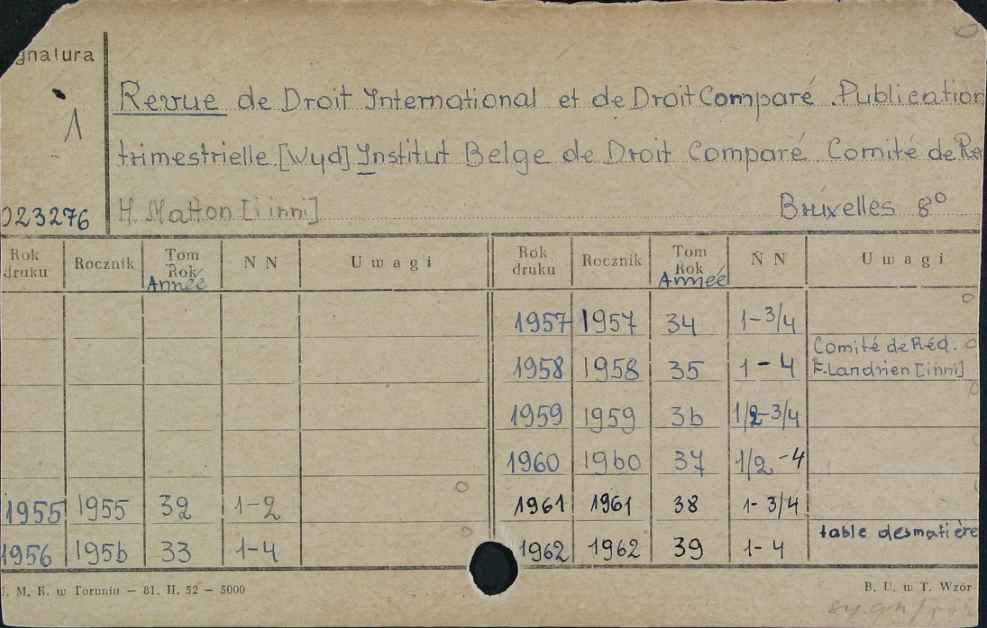 gnatura
1
023276
Revue de Droit International et de Droit Comparé. Publication
trimestrielle [Wyd] Institut Belge de Droit Comparé Comité de Réd
H. Matton [i inni]
Bruxelles 8°
Rok druku Rocznik Tom Rok Année N N Uwagi Rok druku Rocznik Tom Rok Année N N Uwagi
1957 1957 34 1-3/4
Comité de Réd.
1958 1958 35 1-4 F. Landrien [i inni]
1959 1959 36 1/2-3/4
1960 1960 37 1/2-4
1955 1955 32 1-2 1961 1961 38 1-3/4
table desmatière
1956 1956 33 1-4 1962 1962 39 1-4
U. M. K. w Toruniu — 81. II. 52 — 5000
B. U. w T. Wzór